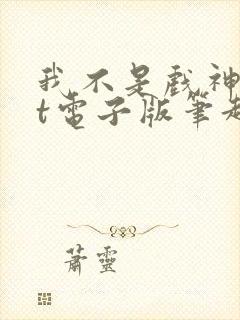 我不是戲神
t電子版筆趣
蕭靈